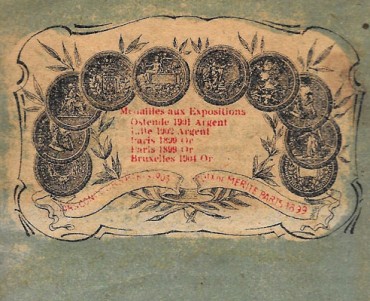 Médailles aux Expositions
Ostende 1901 Argent
Lille 1902 Argent
Paris 1899 Or
Paris 1899 Or
Bruxelles 1904 Or
MERITE PARIS 1899